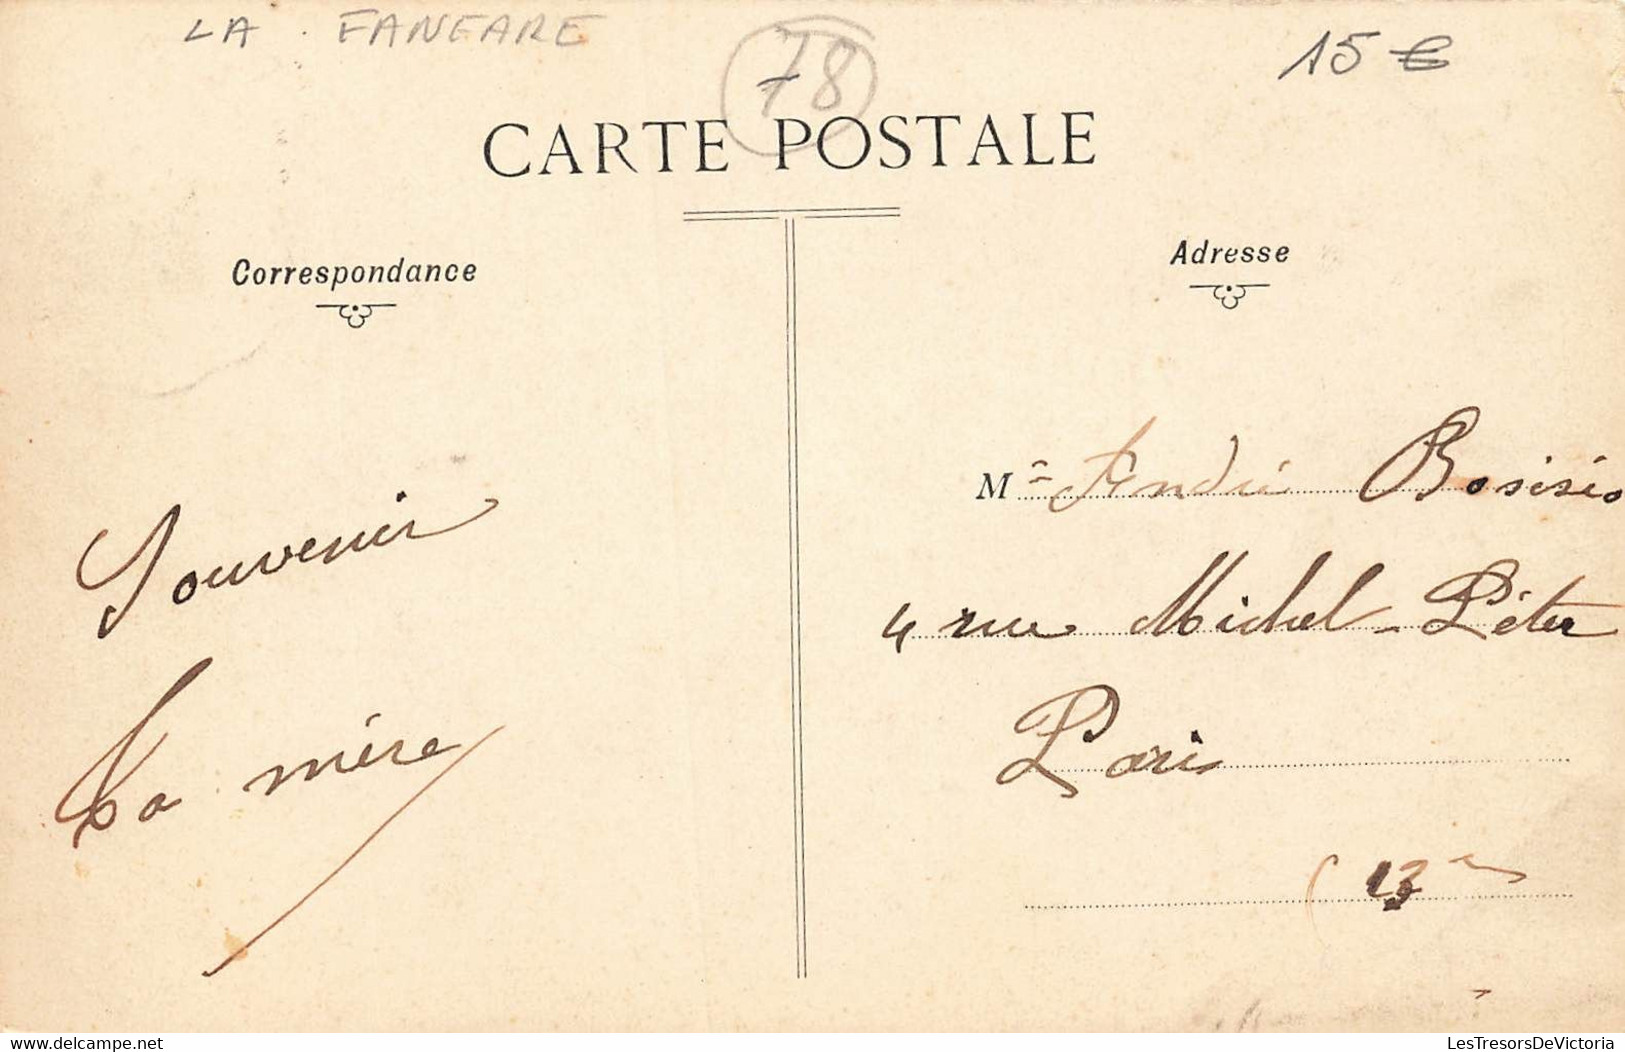 LA . FANFARE
78
15 €
CARTE POSTALE
Correspondance
Adresse
Souvenir
La mère
Mr André Bosisio
4 rue Michel-Péter
Paris
(13e
www.delcampe.net
LesTresorsDeVictoria